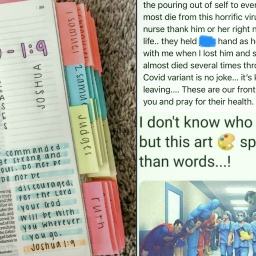 - 1:9
JOSHUA
1 samuel
2 samuel
Judges
ruth
commanded
be strong and
Do not be
Do not be
discouraged,
For the Lord
your God
will be with
you wherever
you go.
Joshua 1:9
the pouring out of self to ever
most die from this horrific viru
nurse thank him or her right n
life.. they held hand as he
with me when I lost him and s
almost died several times thro
Covid variant is no joke... it's k
leaving.... These are our front
you and pray for their health.
I don't know who
but this art 🎨 sp
than words...!